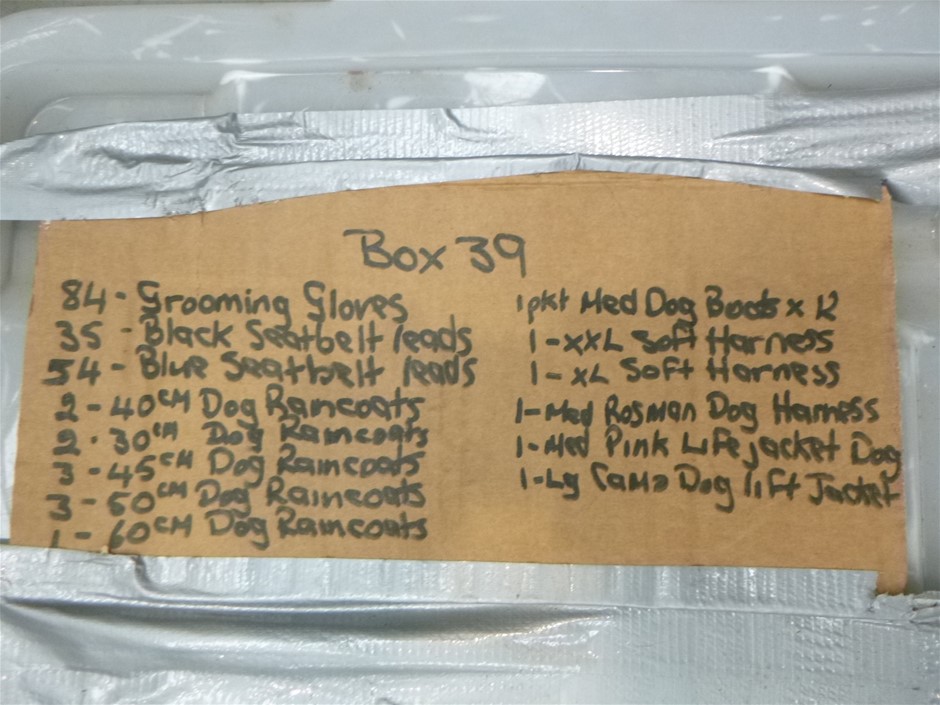 Box 39
84 - Grooming Gloves
35 - Black Seatbelt leads
54 - Blue Seatbelt leads
2 - 40cm Dog Raincoats
2 - 30cm Dog Raincoats
3 - 45cm Dog Raincoats
3 - 50cm Dog Raincoats
1 - 60cm Dog Raincoats
1pkt Med Dog Boots x 12
1 - XXL Soft Harness
1 - XL Soft Harness
1 - Med Rosman Dog Harness
1 - Med Pink Life jacket Dog
1 - Lg Camo Dog lift Jacket